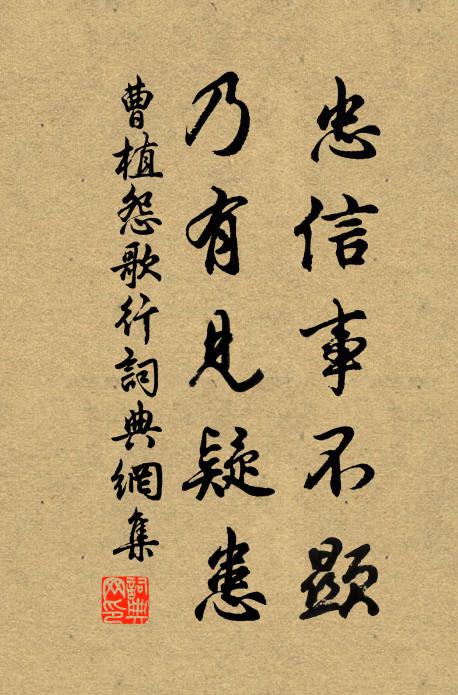 忠信事不顯
乃有見疑患
曹植怨歌行詞典網集
詞典網印